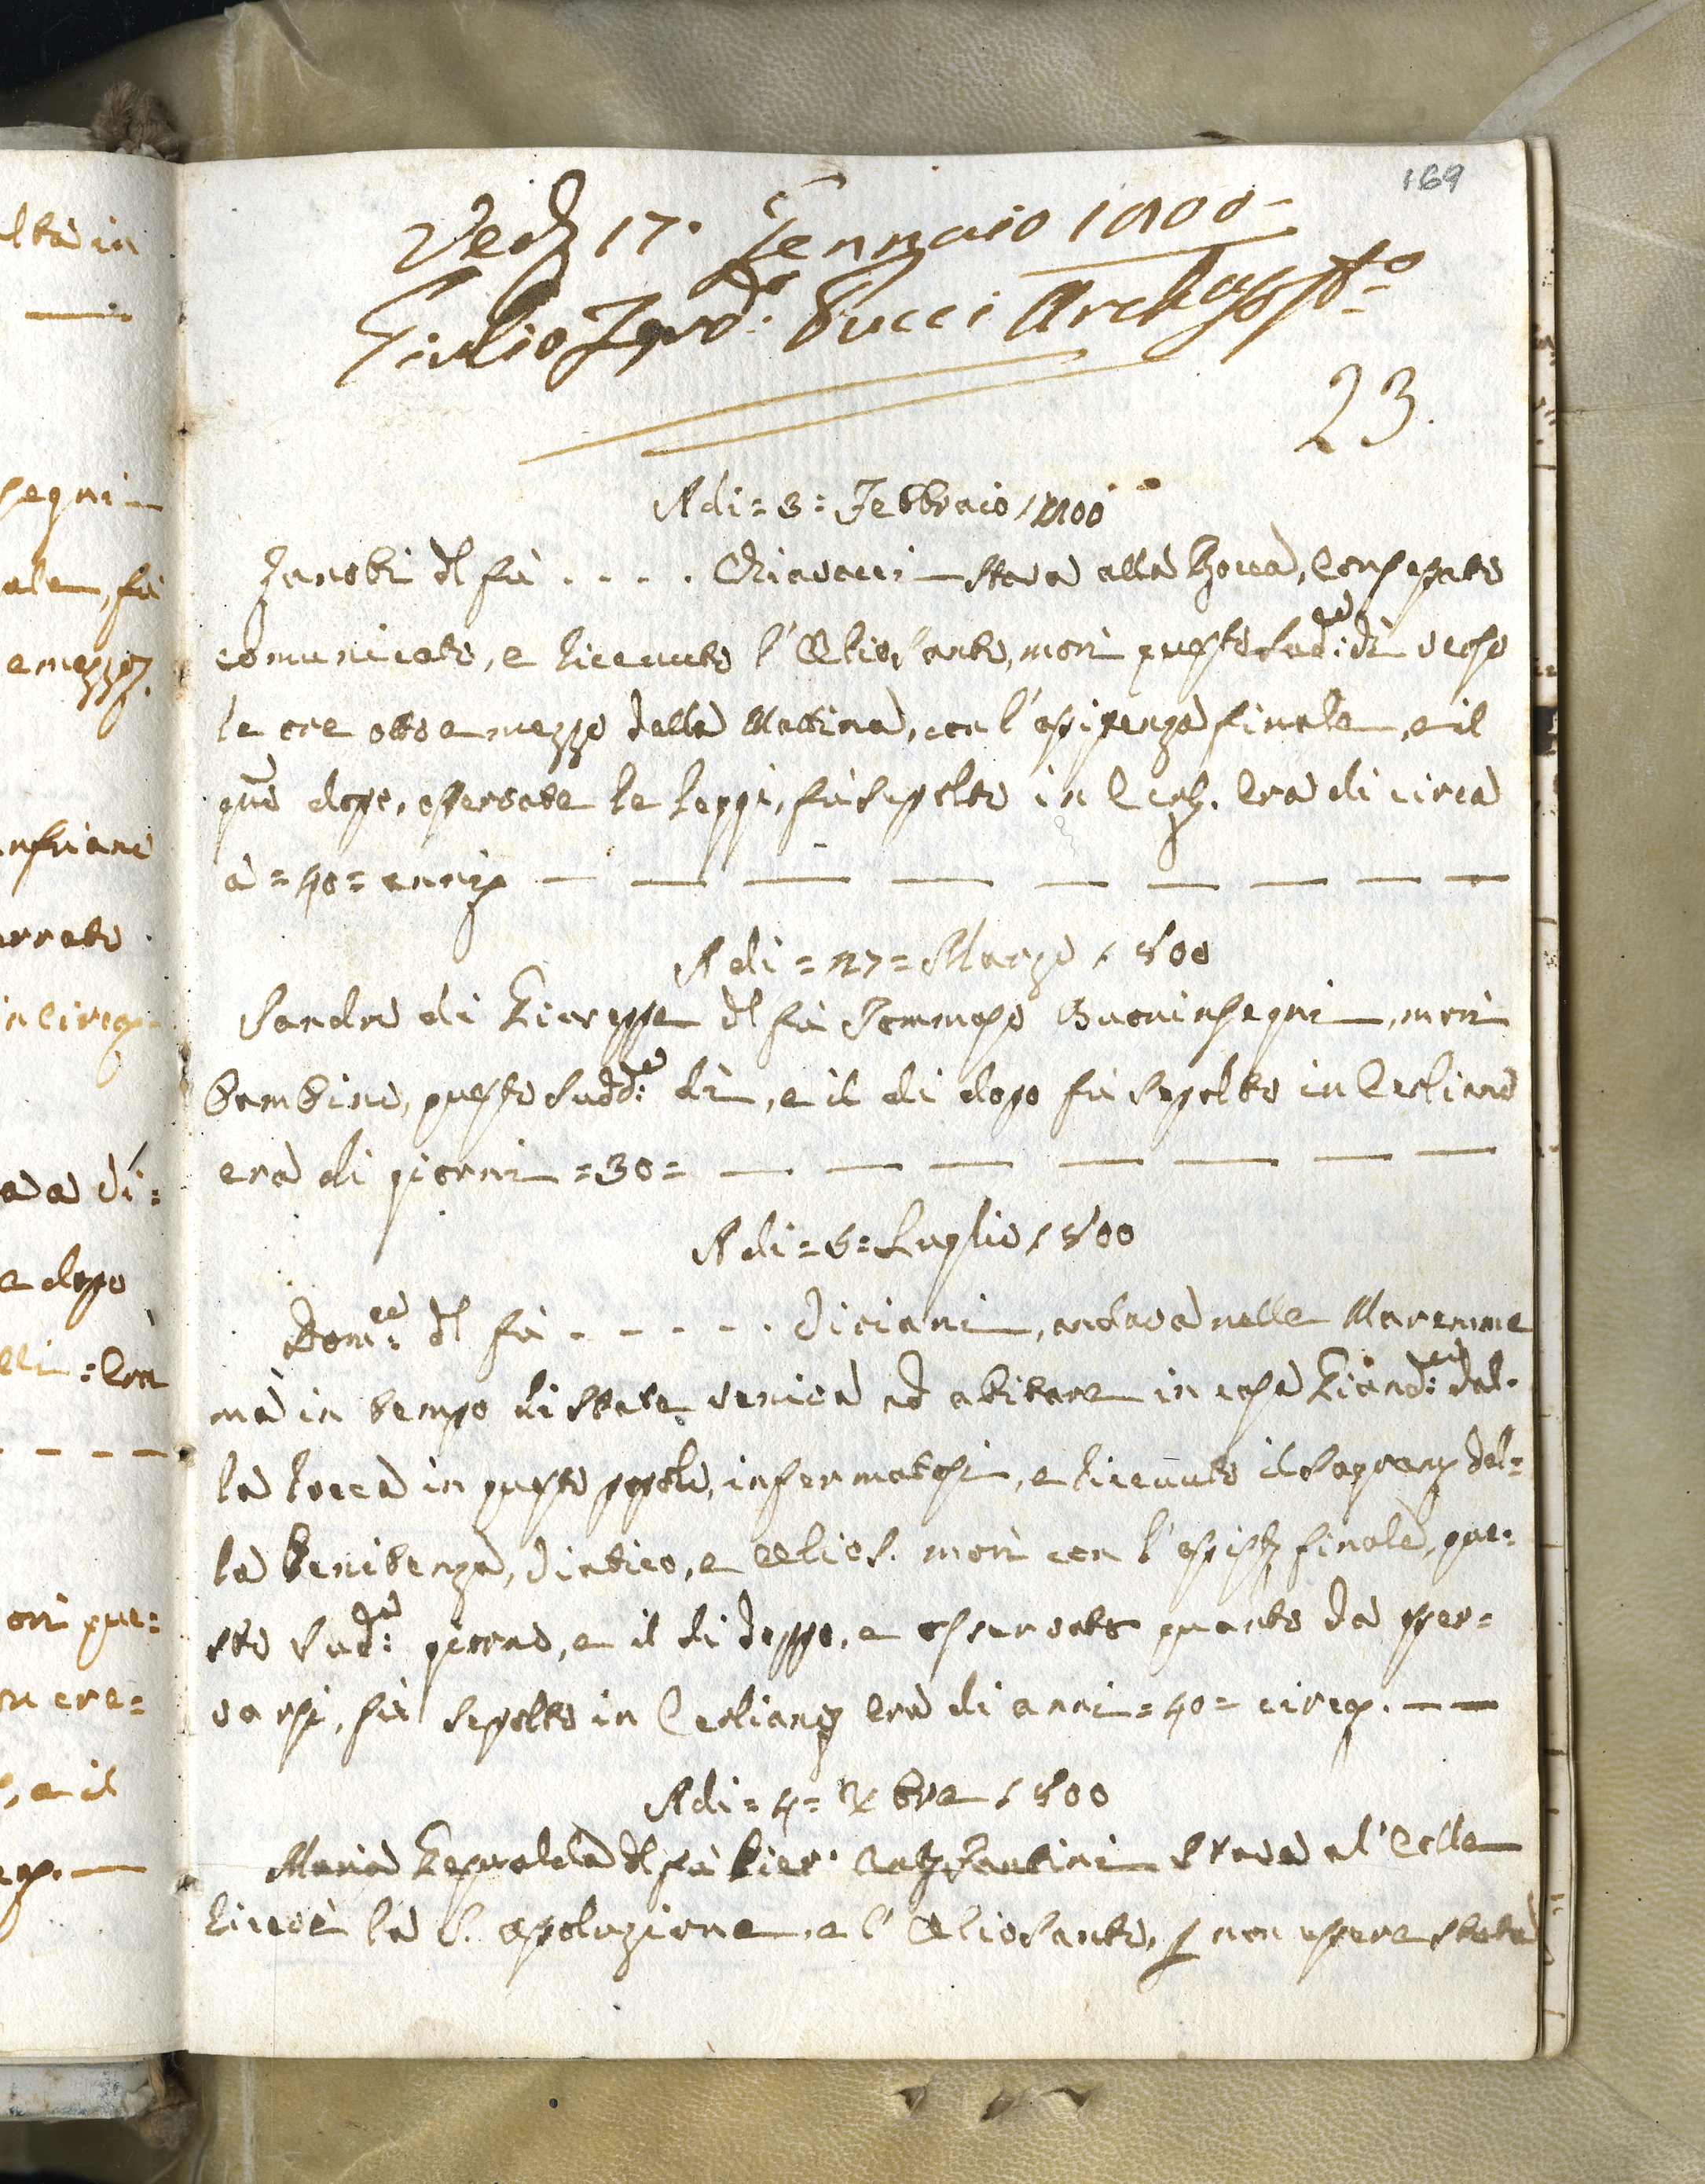 169
Ved. 17. Gennaio 1800
Giulio Pucci
23.
lta in
Adi = 8: Febbraio 1800
segni
Zanobi del fù . . . . Chiavacci stava alla Rocca, Confessato
ale, fù
comunicato, e ricevuto l'Oliosanto, morì questo sud:to dì verso
e mezzo
le ore otto e mezzo della Mattina, con l'assistenza finale, e il
gno dopo, osservate le leggi, fù sepolto in Cerl. Era di circa
a = 40 = anni
Adi = 27 = Marzo 1800
Sandro di Giuseppe del fù Tommaso Buoninsegni, morì
bambino, questo sudd:o dì, e il di dopo fù sepolto in Cerliano
era di giorni = 30 =
ava di:
Adi = 8 = Luglio 1800
e dopo
Dom:co del fù . . . . . Viciani, andava nelle Maremme
ma in tempo di state veniva ad abitare in casa dal-
la rocca in questo popolo, infermatosi, e ricevuto il Sagram. del=
la Penitenza, Viatico, e Olio S. morì con l'assist. finale, que=
ori que=
sto sud:o giorno, e il di doppo, e osservato quanto da osser=
varsi, fù sepolto in Cerliano era di anni = 40 = circa.
, e il
Adi = 4 = Xbre 1800
Maria del fù Pier Ant. Santini stava al' Colle
ricevè la S. assoluzione, e l' Oliosanto, p non essere stata